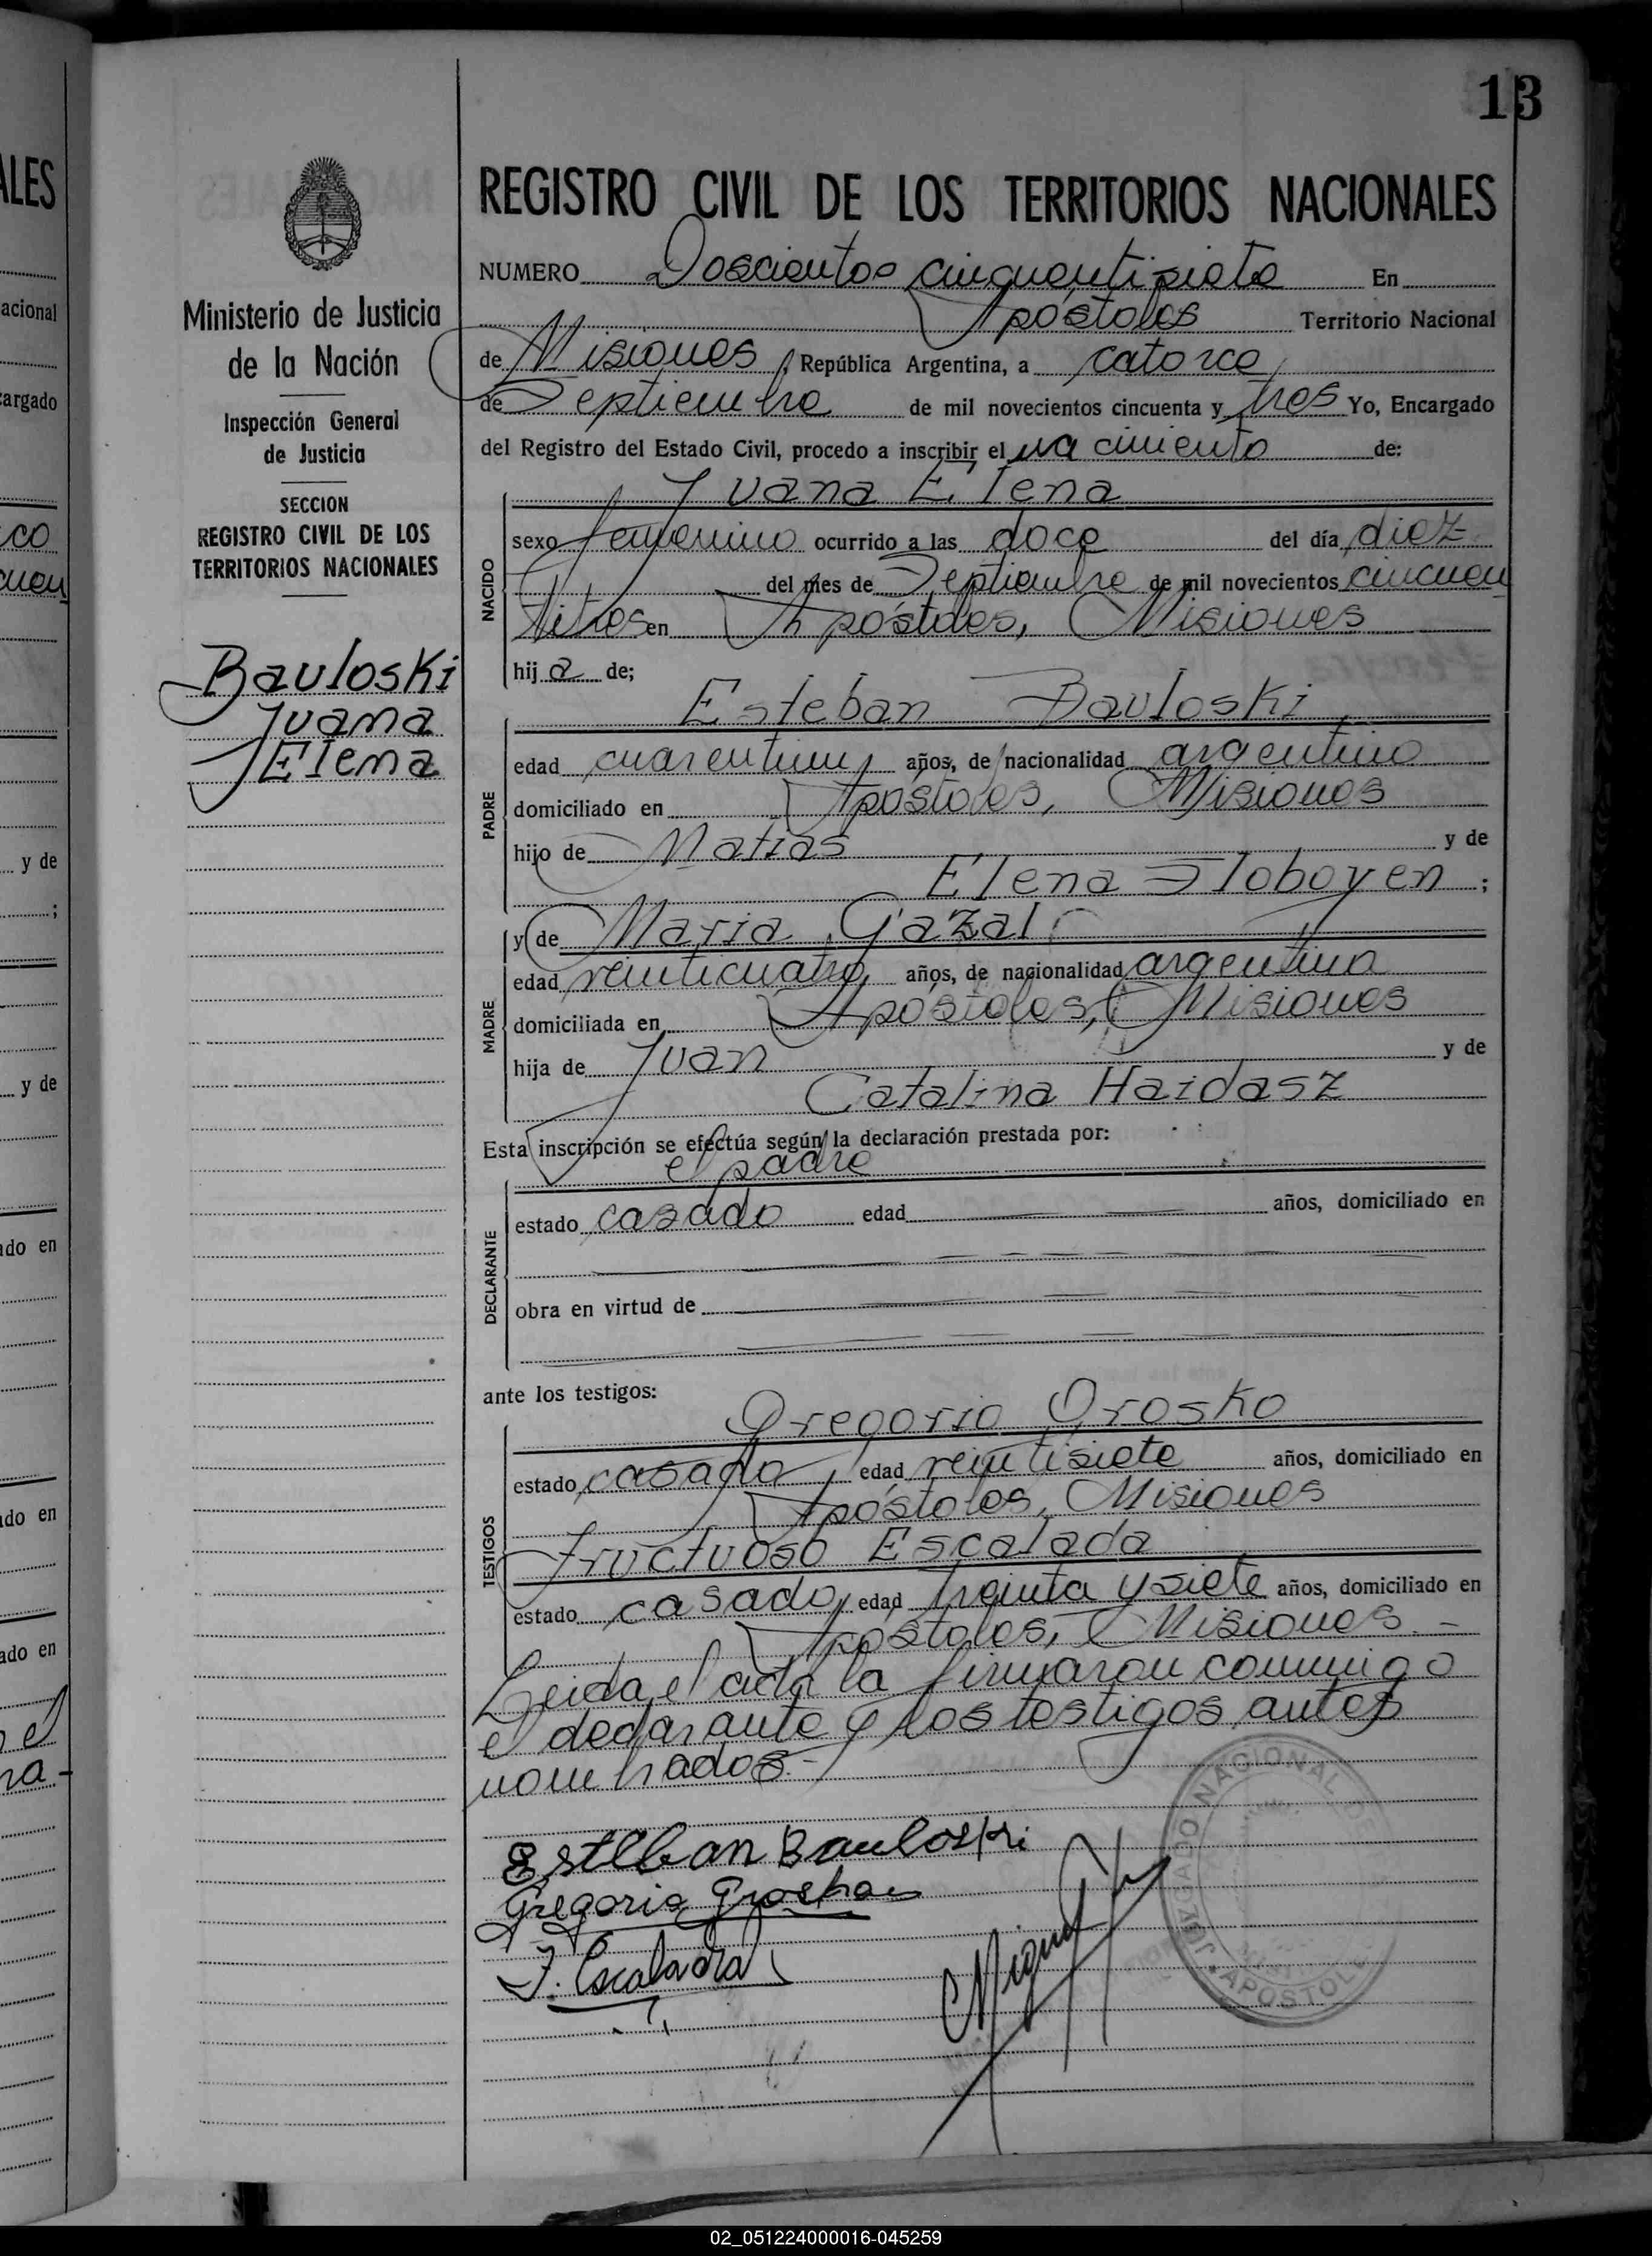 13
REGISTRO CIVIL DE LOS TERRITORIOS NACIONALES
NUMERO Doscientos cincuentisiete En
Apóstoles Territorio Nacional
de Misiones, República Argentina, a catorce
de Septiembre de mil novecientos cincuenta y tres Yo, Encargado
del Registro del Estado Civil, procedo a inscribir el nacimiento de:
Juana Elena
NACIDO
sexo femenino ocurrido a las doce del día diez
del mes de Septiembre de mil novecientos cincuen
titres en Apóstoles, Misiones
hija de;
Esteban Bauloski,
PADRE
edad cuarentiun, años, de nacionalidad argentino
domiciliado en Apóstoles, Misiones
hijo de Matias y de
Elena Sloboyen ;
MADRE
y de Maria Gazal,
edad veinticuatro, años, de nacionalidad argentina
domiciliada en Apóstoles, Misiones
hija de Juan y de
Catalina Haidasz
Esta inscripción se efectúa según la declaración prestada por:
el padre
DECLARANTE
estado casado edad años, domiciliado en
obra en virtud de
ante los testigos:
Gregorio Grosko
TESTIGOS
estado casado, edad veintisiete años, domiciliado en
Apóstoles, Misiones
Fructuoso Escalada
estado casado, edad treinta y siete años, domiciliado en
Apóstoles, Misiones.-
Leida el acta la firmaron conmigo
el declarante y los testigos antes
nombrados.-
Esteban Bauloski
Gregorio Grosko
F. Escalada
JUZGADO NACIONAL DE
APOSTOL
Ministerio de Justicia
de la Nación
Inspección General
de Justicia
SECCION
REGISTRO CIVIL DE LOS
TERRITORIOS NACIONALES
Bauloski
Juana
Elena
ALES
acional
cargado
co
cuen
y de
;
y de
ado en
ado en
ado en
el
na-
02_051224000016-045259